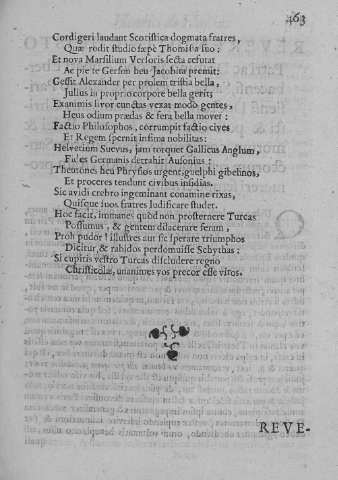 463
Cordigeri laudant Scotistica dogmata fratres,
Quæ rodit studio sæpè Thomista suo:
Et nova Marsilium Versoris secta refutat
Ac pie te Gerson heu Jacobita premit:
Gessit Alexander per prolem tristia bella,
Julius in proprio corpore bella gerit;
Exanimis livor cunctas vexat modo gentes,
Heus odium prædas & fera bella movet:
Factio Philosophos, corrumpit factio cives
Et Regem spernit infima nobilitas:
Helvetium Suevus, jam torquet Gallicus Anglum,
Fides Germanis detrahit Ausonius:
Theutones heu Phrysios urgent, guelphi gibelinos,
Et proceres tendunt civibus insidias.
Sic avidi crebro ingeminant conamine rixas,
Quisque suos fratres Judificare studet.
Hoc facit, immanes quòd non prosternere Turcas
Possumus, & gentem dilacerare feram,
Proh pudor! illustres aut sic sperare triumphos
Dicitur, & rabidos perdomuisse Scythas:
Si cupitis vestro Turcas discludere regno
Christicolas, unanimes vos precor esse viros.
REVE-